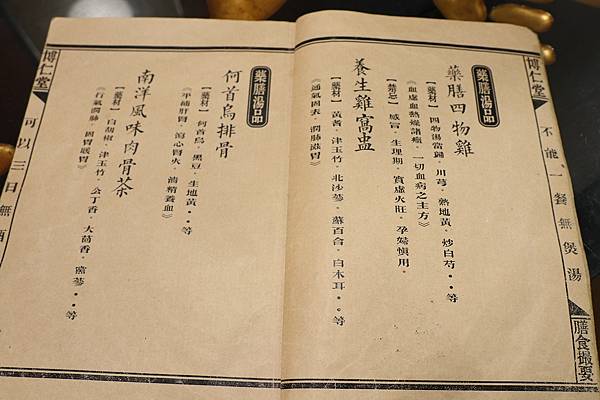 博仁堂
不能一餐無煲湯
膳食撮要
藥膳湯品
藥膳四物雞
【藥材】四物湯當歸．川芎．熱地黃．炒白芍．．等
《血虛血熱燥諸症．一切血病之主方》
【禁忌】感冒．生理期．實虛火旺．孕婦慎用．
養生雞窩盅
【藥材】黃耆．津玉竹．北沙蔘．蘇百合．白木耳．．等
《通氣固表．潤肺滋胃》
博仁堂
可以三日無酒
藥膳湯品
何首烏排骨
【藥材】何首烏．黑豆．生地黃．．等
《平補肝腎．瀉心腎火．補精養血》
南洋風味肉骨茶
【藥材】白胡椒．津玉竹．公丁香．大茴香．黨蔘．．等
《行氣潤肺．固胃暖胃》